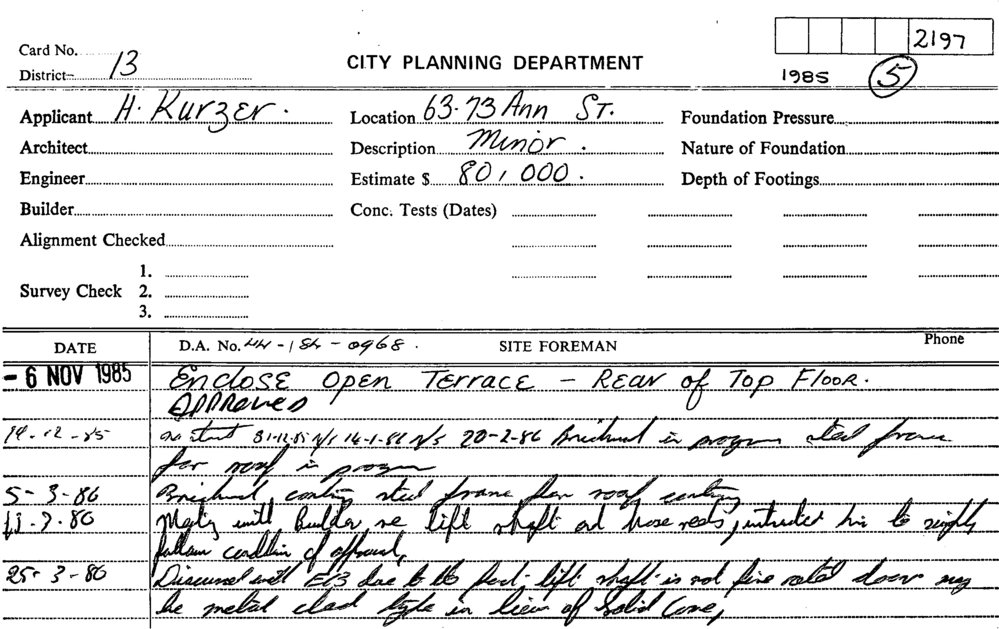 2197
Card No.
District 13
CITY PLANNING DEPARTMENT
1985 5
Applicant H. Kurzer. Location 63-73 Ann St. Foundation Pressure
Architect Description Minor. Nature of Foundation
Engineer Estimate $ 80,000. Depth of Footings
Builder Conc. Tests (Dates)
Alignment Checked
1.
Survey Check 2.
3.
DATE D.A. No. 44-84-0968. SITE FOREMAN Phone
- 6 NOV 1985 Enclose open Terrace - Rear of Top Floor.
Approved
19-12-85 no start 31-12-85 N/S 14-1-86 N/S 20-2-86 Brickwork in progress steel frame
for roof in progress
5-3-86 Brickwork, conting steel frame for roof conting
11-3-86 with Builder, re lift shaft and hose reels, instructed him to
follow condition of approval,
25-3-86 Discussed with due to the fact lift shaft is not fire rated doors may
be metal clad style in lieu of Solid Core,